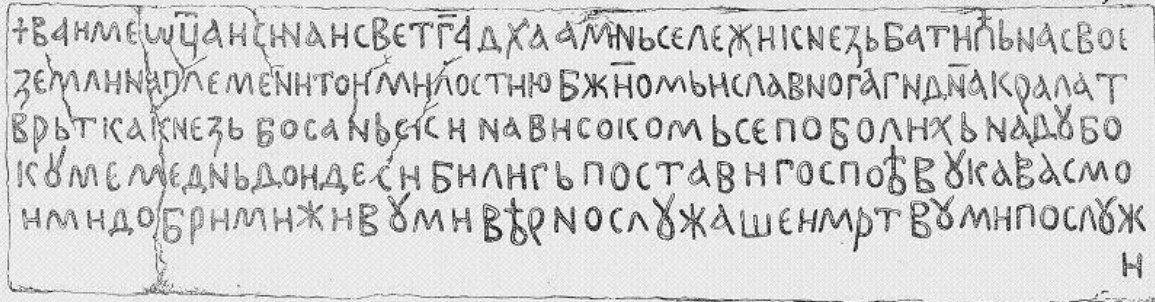 †ВАИМЕѠЦ҃АИСИНАИСВЕТГ҃АДХ҃ААМ҃НЬСЕЛЕЖИКНЕЗЬБАТИꙉЬНАСВОЕ
ЗЕМЛИНАПЛЕМЕНИТОИМИЛОСТИЮБЖИ҃ОМЬИСЛАВНОГАГ҃НДН҃АКРАЛАТ
ВРЬТКАКНЕЗЬБОСАНЬСКИНАВИСОКОМЬСЕПОБОЛИХЬНАДꙊБО
КꙊМЕМЕДНЬДОИДЕСИБИЛИГЬПОСТАВИГОСПОꙉВꙊКАВАСМО
ИМИДОБРИМИЖИВꙊМИВꙉРНОСЛꙊЖАШЕИМРТВꙊМИПОСЛꙊЖ
И